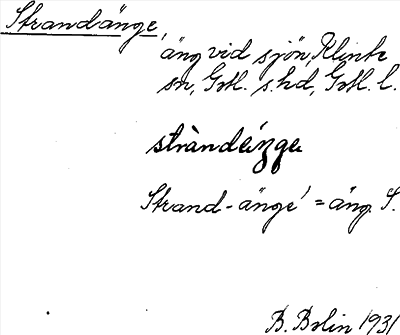 Strandänge,
äng vid sjön, Klinte
sn, Gotl. s. hd, Gotl. l.
stràndézge
Strand-änge' = äng S.
B. Bolin 1931